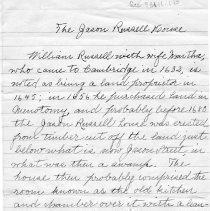 The Jason Russell House
William Russell with wife Martha,
who came to Cambridge in 1632, is
noted as being a land proprietor in
1645; in 1656 he purchased land in
Menotomy, and probably before 1680
the Jason Russell house was erected
from timber cut off the land just
below what is now Jason Street, in
what was then a swamp. The
house then probably comprised the
room known as the old kitchen
and chamber over it with a lean-